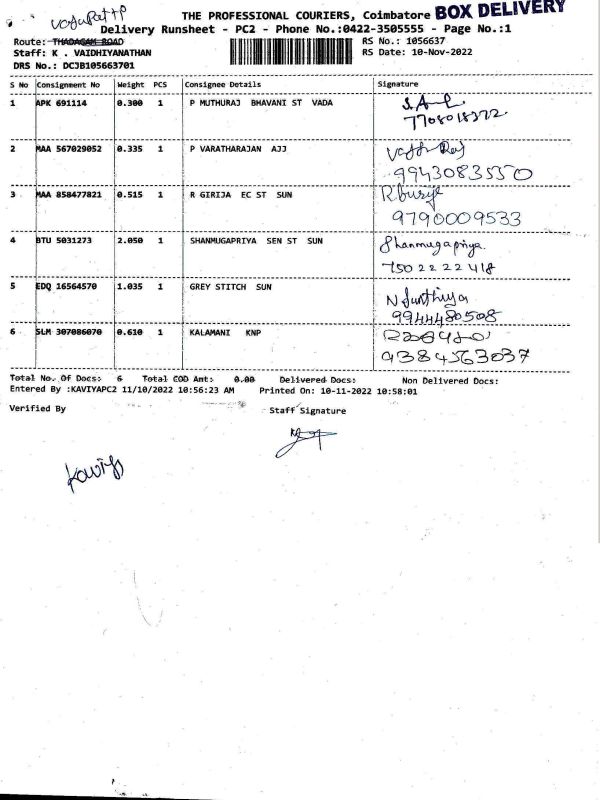 THE PROFESSIONAL COURIERS, Coimbatore BOX DELIVERY
Delivery Runsheet - PC2 - Phone No.:0422-3505555 - Page No.:1
Route: THADAGAM ROAD RS No.: 1056637
Staff: K . VAIDHIYANATHAN RS Date: 10-Nov-2022
DRS No.: DCJB105663701
S No Consignment No Weight PCS Consignee Details Signature
1 APK 691114 0.300 1 P MUTHURAJ BHAVANI ST VADA
7708018372
2 MAA 567029052 0.335 1 P VARATHARAJAN AJJ
9943083550
3 MAA 858477821 0.515 1 R GIRIJA EC ST SUN
9790009533
4 BTU 5031273 2.050 1 SHANMUGAPRIYA SEN ST SUN Shanmugapriya
750 22 22 418
5 EDQ 16564570 1.035 1 GREY STITCH SUN
9944480508
6 SLM 307086070 0.610 1 KALAMANI KNP
9384563037
Total No. Of Docs: 6 Total COD Amt: 0.00 Delivered Docs: Non Delivered Docs:
Entered By :KAVIYAPC2 11/10/2022 10:56:23 AM Printed On: 10-11-2022 10:58:01
Verified By Staff Signature